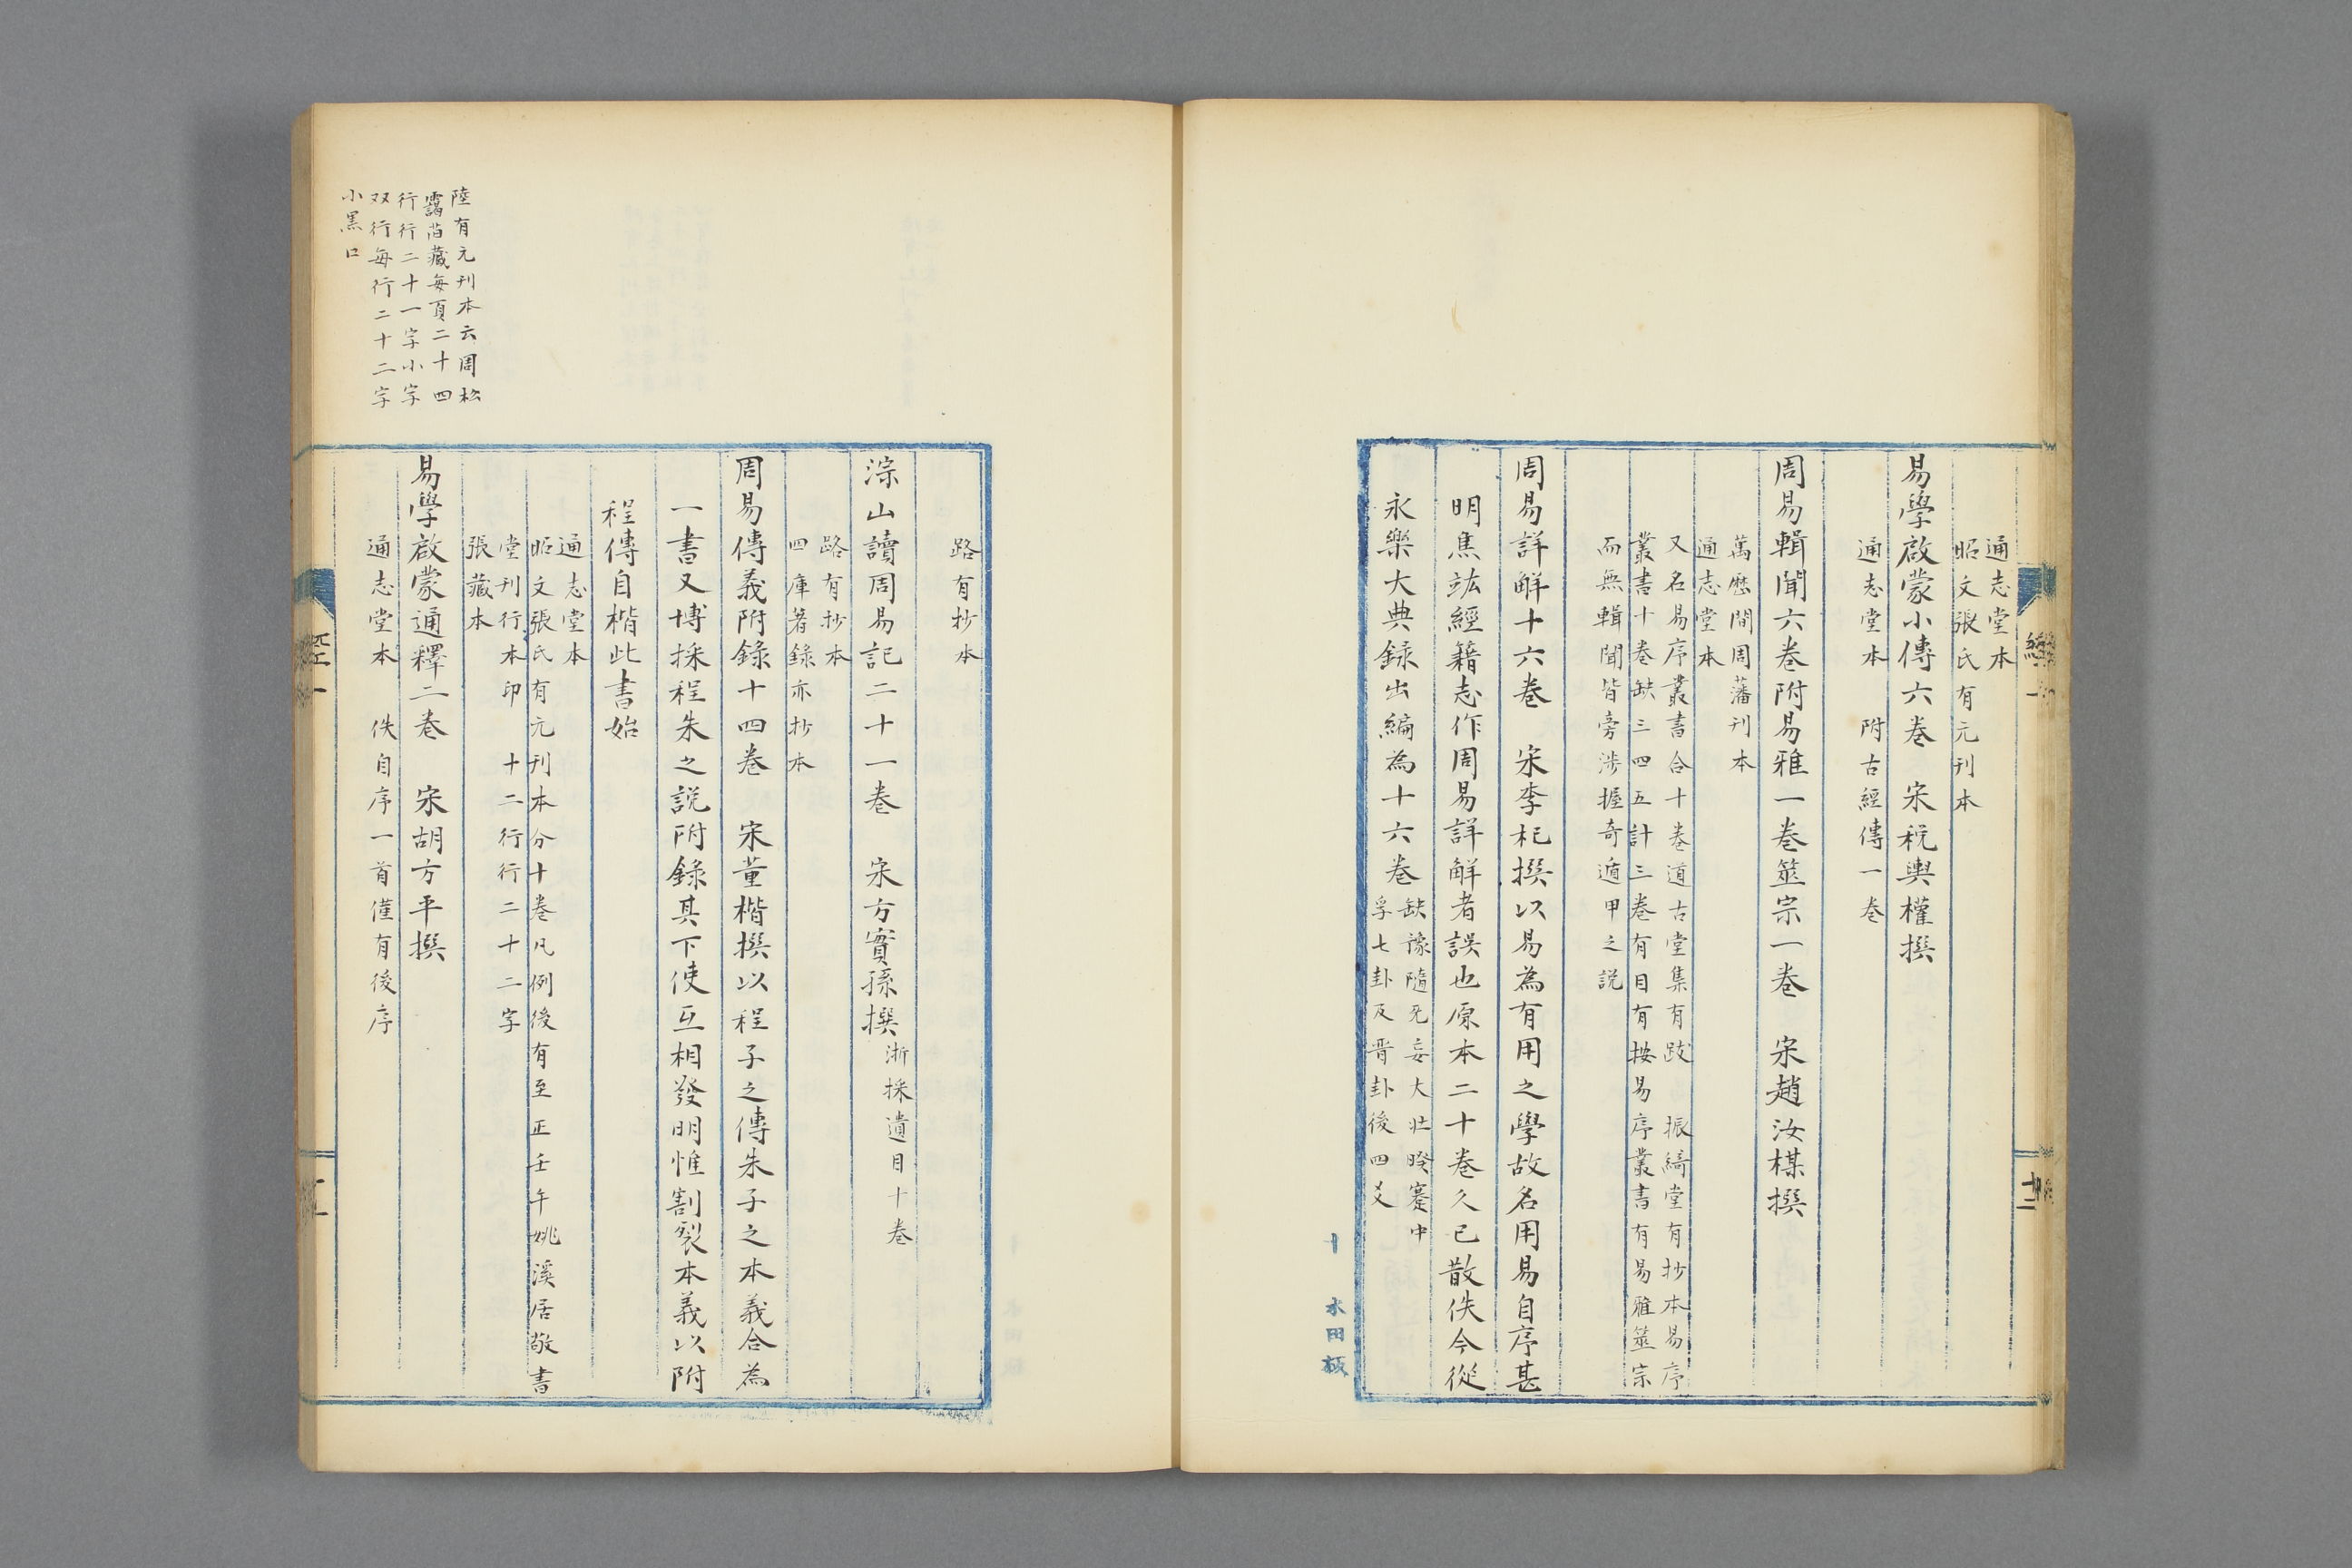 通志堂本
昭文張氏有元刊本
易學啟蒙小傳六卷　宋稅與權撰
通志堂本　附古經傳一卷
周易輯聞六卷附易雅一卷筮宗一卷　宋趙汝楳撰
萬厯間周藩刊本
通志堂本
又名易序叢書合十卷道古堂集有跋　振綺堂有抄本易序
叢書十卷缺三四五計三卷有目有按易序叢書有易雅筮宗
而無輯聞皆旁涉握奇遁甲之説
周易詳解十六卷　宋李杞撰以易為有用之學故名用易自序甚
明焦竑經籍志作周易詳解者誤也原本二十卷久已散佚今從
永樂大典録出編為十六卷
缺豫隨无妄大壯睽蹇中
孚七卦及晋卦後四爻
十　木田板
路有抄本
淙山讀周易記二十一卷　宋方實孫撰
浙採遺目十卷
路有抄本
四庫著録亦抄本
周易傳義附錄十四卷　宋董楷撰以程子之傳朱子之本義合為
一書又博採程朱之説附錄其下使互相發明惟割裂本義以附
程傳自楷此書始
通志堂本
昭文張氏有元刊本分十卷凡例後有至正壬午姚溪居敬書
堂刊行本印　十二行行二十二字
張藏本
易學啟蒙通釋二卷　宋胡方平撰
通志堂本　佚自序一首僅有後序
陸有元刊本云周松
靄舊藏每頁二十四
行行二十一字小字
双行每行二十二字
小黑口